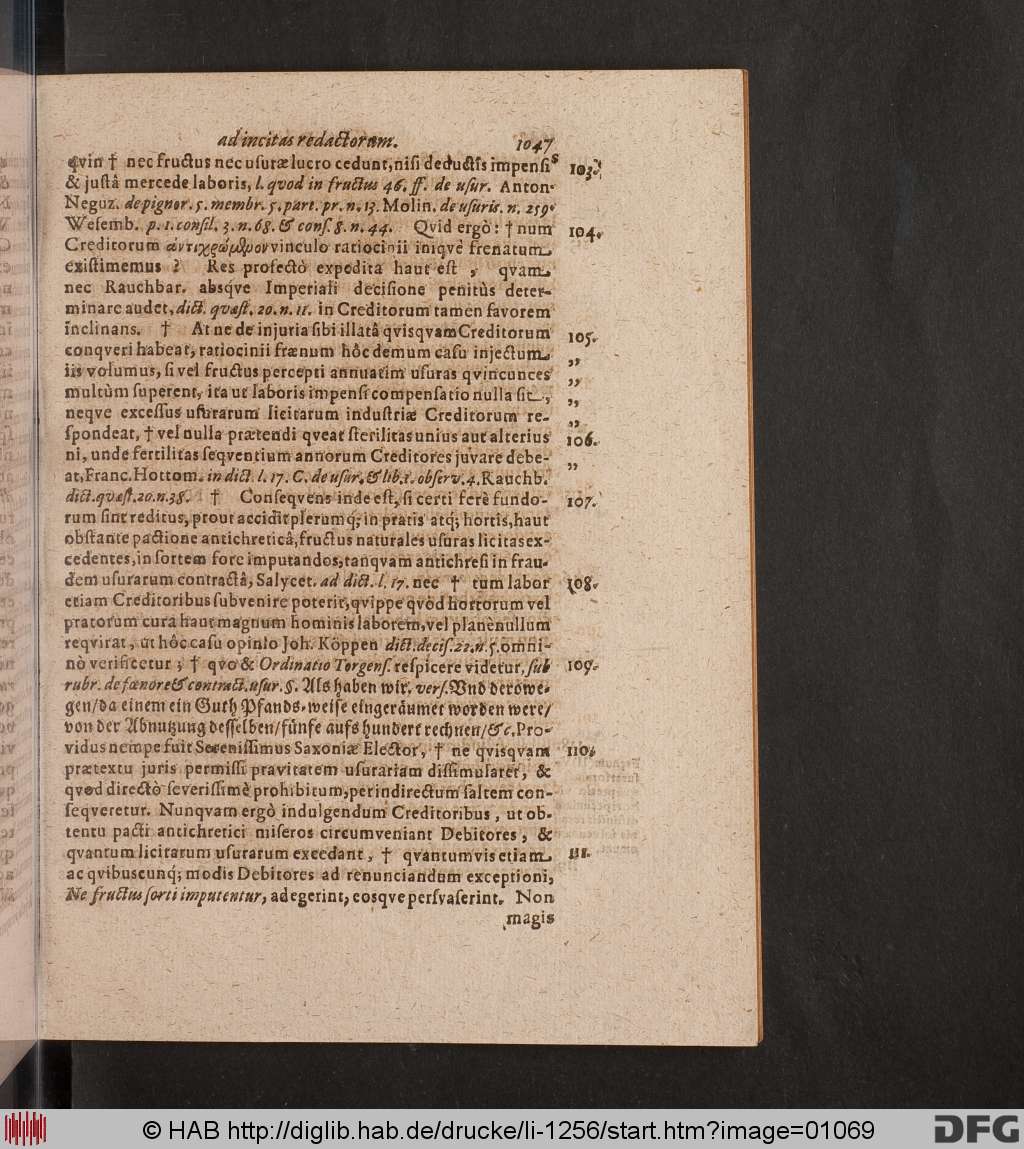 ad incitas redactorum. 1047
qvin † nec fructus nec usuræ lucro cedunt, nisi deductîs impensis 103.
& justâ mercede laboris, l. qvod in fructus 46. ff. de usur. Anton.
Neguz. de pignor. 5. membr. 5. part. pr. n. 13. Molin. de usuris. n. 259.
Wesemb. p. 1. consil. 3. n. 68. & cons. 8. n. 44. Qvid ergò: † num 104.
Creditorum vinculo ratiocinii iniqvè frenatum
existimemus? Res profectò expedita haut est, qvam
nec Rauchbar. absqve Imperiali decisione penitùs deter-
minare audet, dict. qvæst. 20. n. 11. in Creditorum tamen favorem
inclinans. † At ne de injuria sibi illatâ qvisqvam Creditorum 105.
conqveri habeat, ratiocinii frænum hôc demum casu injectum „
iis volumus, si vel fructus percepti annuatim usuras qvincunces „
multùm superent, ita ut laboris impensi compensatio nulla sit, „
neqve excessus usurarum licitarum industriæ Creditorum re- „
spondeat, † vel nulla prætendi qveat sterilitas unius aut alterius 106.
ni, unde fertilitas seqventium annorum Creditores juvare debe- „
at, Franc. Hottom. in dict. l. 17. C. de usur. & lib. 1. observ. 4. Rauchb.
dict. qvæst. 20. n. 38. † Conseqvens inde est, si certi ferè fundo- 107.
rum sint reditus, prout accidit plerumq; in pratis atq; hortis, haut
obstante pactione antichreticâ, fructus naturales usuras licitas ex-
cedentes, in sortem fore imputandos, tanqvam antichresi in frau-
dem usurarum contractâ, Salycet. ad dict. l. 17. nec † tum labor 108.
etiam Creditoribus subvenire poterit, qvippe qvòd hortorum vel
pratorum cura haut magnum hominis laborem, vel planè nullum
reqvirat, ut hôc casu opinio Joh. Köppen dict. decis. 22. n. 5. omni-
nò verificetur; † qvo & Ordinatio Torgens. respicere videtur, sub 109.
rubr. de fœnore & contract. usur. §. Als haben wir, vers. Und derowe-
gen/ da einem ein Guth Pfands-weise eingeräumet worden were/
von der Abnutzung desselben/ fünfe aufs hundert rechnen/ &c. Pro-
vidus nempe fuit Serenissimus Saxoniæ Elector, † ne qvisqvam 110.
prætextu juris permissi pravitatem usurariam dissimularet, &
qvod directò severissimè prohibitum, per indirectum saltem con-
seqveretur. Nunqvam ergò indulgendum Creditoribus, ut ob-
tentu pacti antichretici miseros circumveniant Debitores, &
qvantum licitarum usurarum excedant, † qvantumvis etiam 111.
ac qvibuscunq; modis Debitores ad renunciandum exceptioni,
Ne fructus sorti imputentur, adegerint, eosqve persvaserint. Non
magis
© HAB http://diglib.hab.de/drucke/li-1256/start.htm?image=01069
DFG